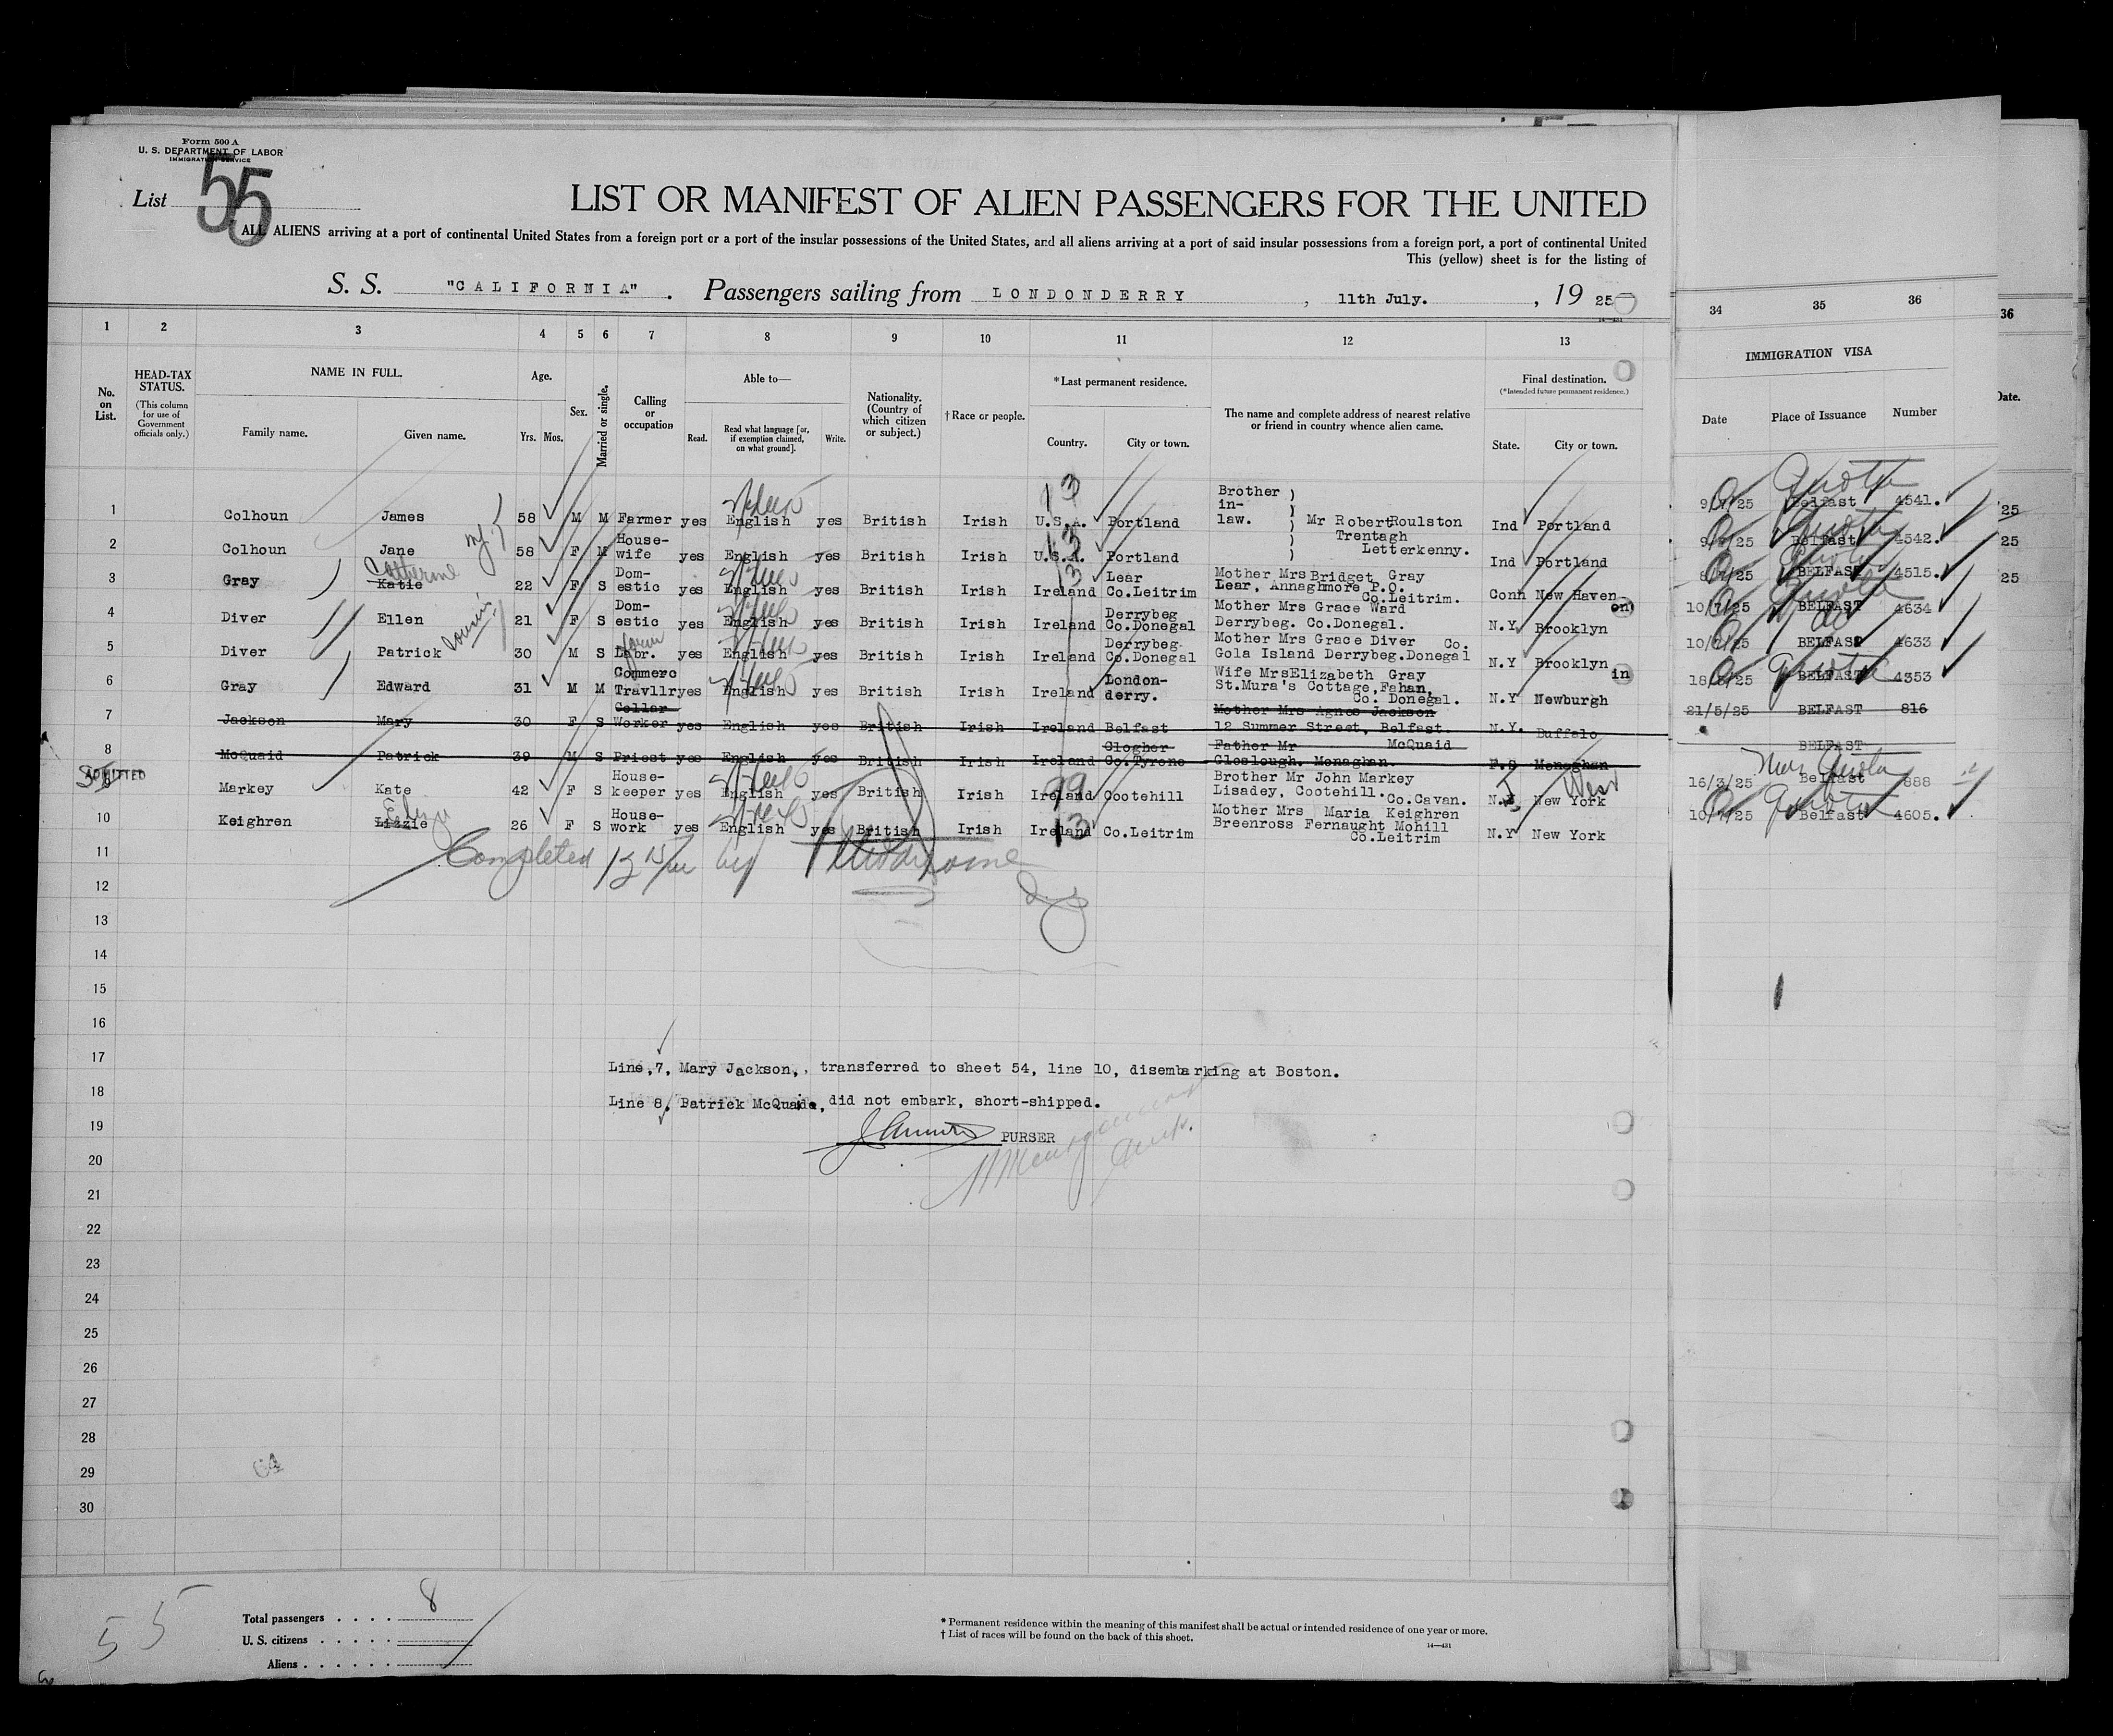 Form 500 A
U. S. DEPARTMENT OF LABOR
IMMIGRATION SERVICE
List 55
LIST OR MANIFEST OF ALIEN PASSENGERS FOR THE UNITED
ALL ALIENS arriving at a port of continental United States from a foreign port or a port of the insular possessions of the United States, and all aliens arriving at a port of said insular possessions from a foreign port, a port of continental United
This (yellow) sheet is for the listing of
S. S. "CALIFORNIA" . Passengers sailing from LONDONDERRY , 11th July. , 19 25
1 2 3 4 5 6 7 8 9 10 11 12 13 34 35 36 36
No. on List.
HEAD-TAX STATUS.
(This column for use of Government officials only.)
NAME IN FULL.
Family name. Given name.
Age.
Yrs. Mos.
Sex.
Married or single.
Calling or occupation
Able to—
Read. Read what language [or, if exemption claimed, on what ground]. Write.
Nationality. (Country of which citizen or subject.)
† Race or people.
*Last permanent residence.
Country. City or town.
The name and complete address of nearest relative or friend in country whence alien came.
Final destination.
(*Intended future permanent residence.)
State. City or town.
IMMIGRATION VISA
Date Place of Issuance Number
Date.
1 Colhoun James 58 M M Farmer yes English yes British Irish U.S.A. Portland Brother in-law. Mr Robert Roulston Ind Portland 9/7/25 Belfast 4541. Quota
2 Colhoun Jane 58 F M House-wife yes English yes British Irish U.S.A. Portland Trentagh Letterkenny. Ind Portland 9/7/25 Belfast 4542.
3 Gray Katie Catherine 22 F S Dom-estic yes English yes British Irish Ireland Lear Co.Leitrim Mother Mrs Bridget Gray Lear, Annaghmore P.O. Co.Leitrim. Conn New Haven 8/7/25 BELFAST 4515.
4 Diver Ellen 21 F S Dom-estic yes English yes British Irish Ireland Derrybeg Co.Donegal Mother Mrs Grace Ward Derrybeg. Co.Donegal. N.Y. Brooklyn 10/7/25 BELFAST 4634
5 Diver Patrick cousin 30 M S farm Labr. yes English yes British Irish Ireland Derrybeg Co.Donegal Mother Mrs Grace Diver Co. Gola Island Derrybeg.Donegal N.Y Brooklyn 10/7/25 BELFAST 4633
6 Gray Edward 31 M M Commerc Travllr yes English yes British Irish Ireland London-derry. Wife Mrs Elizabeth Gray St.Mura's Cottage, Fahan, Co. Donegal. N.Y Newburgh BELFAST 4353 Quota
7 Jackson Mary 30 F S Collar Worker yes English yes British Irish Ireland Belfast Mother Mrs Agnes Jackson 12 Summer Street, Belfast. N.Y. Buffalo 21/5/25 BELFAST 816
8 McQuaid Patrick 39 M S Priest yes English yes British Irish Ireland Clogher Co.Tyrone Father Mr McQuaid Closlough. Monaghan. Monaghan BELFAST
ADMITTED Markey Kate 42 F S House-keeper yes English yes British Irish Ireland Cootehill Brother Mr John Markey Lisadey, Cootehill. Co.Cavan. New York 16/3/25 Belfast 888 Non Quota
10 Keighren Lizzie Eliza 26 F S House-work yes English yes British Irish Ireland Co.Leitrim Mother Mrs Maria Keighren Breenross Fernaught Mohill Co.Leitrim N.Y New York 10/7/25 Belfast 4605. Quota
11 Completed by
12
13
14
15
16
17 Line,7, Mary Jackson, transferred to sheet 54, line 10, disembarking at Boston.
18 Line 8, Patrick McQuade, did not embark, short-shipped.
19 PURSER
20
21
22
23
24
25
26
27
28
29
30
55
Total passengers . . . . 8
U. S. citizens . . . . .
Aliens . . . . . .
* Permanent residence within the meaning of this manifest shall be actual or intended residence of one year or more.
† List of races will be found on the back of this sheet.
14—431